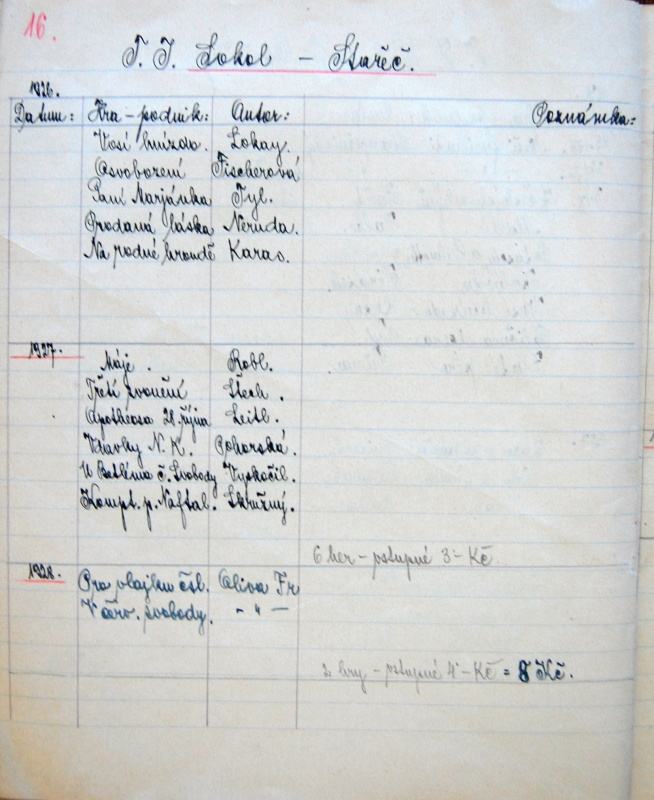 16.
T. J. Sokol – Stařeč.
1926.
Datum: Hra-podnik: Autor: Poznámka:
Vosí hnízdo. Lokay.
Osvobození Fischerová
Paní Marjánka Tyl.
Prodaná láska Neruda.
Na rodné hroudě Karas.
1927.
Máje. Robl.
Třetí zvonění Štech.
Apotheosa 28. října Leitl.
Vdavky N. K. Pohorská.
U Betléma č. Svobody Vyskočil.
Kompt. p. Naftal. Skružný.
6 her – vstupné 3·– Kč
1928.
Pro vlajku čsl. Oliva Fr
V červ. svobody. – " –
2 hry – vstupné 4·– Kč = 8 Kč.